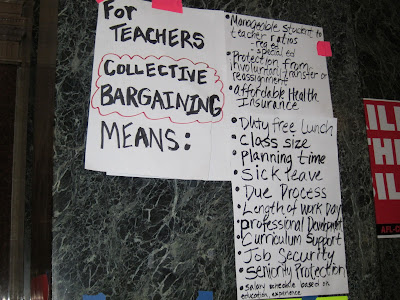 For
TEACHERS
COLLECTIVE
BARGAINING
MEANS:
• Manageable student to
teacher ratios
- reg ed
- special ed
• Protection from
involuntary transfer or
reassignment
• Affordable Health
Insurance
• Duty free Lunch
• Class size
• planning time
• Sick leave
• Due Process
• Length of work Day
• professional Development
• Curriculum Support
• Job Security
• Seniority Protection
• Salary schedule based on
education, experience